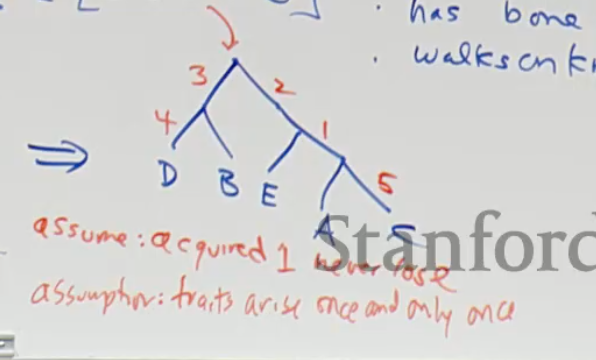 has bone
walks on k
3 2
4 1
5
D B E A C
Stanford
assume: acquired 1 never lose
assumption: traits arise once and only once